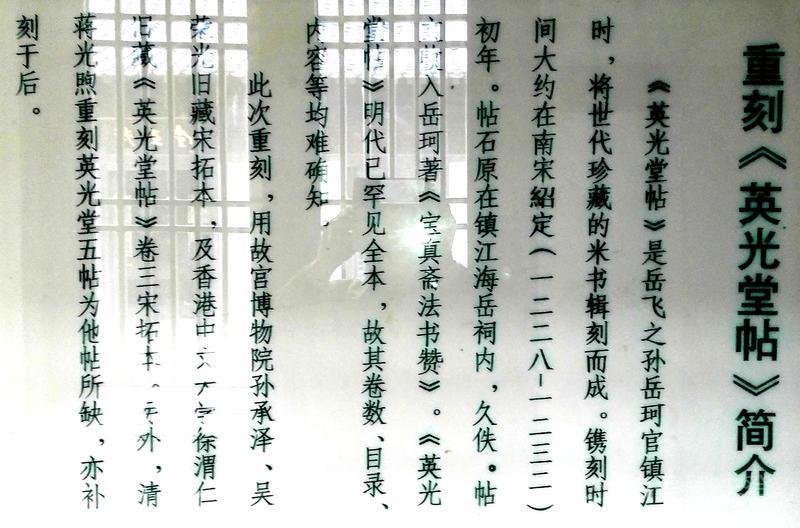 重刻《英光堂帖》简介
《英光堂帖》是岳飞之孙岳珂官镇江
时，将世代珍藏的米书辑刻而成。镌刻时
间大约在南宋紹定（一二二八-一二三二）
初年。帖石原在镇江海岳祠内，久佚。帖
入岳珂著《宝真斋法书赞》。《英光
堂帖》明代已罕见全本，故其卷数、目录、
内容等均难确知。
此次重刻，用故宫博物院孙承泽、吴
荣光旧藏宋拓本，及香港中文大学徐渭仁
旧藏《英光堂帖》卷三宋拓本。另外，清
蒋光煦重刻英光堂五帖为他帖所缺，亦补
刻于后。